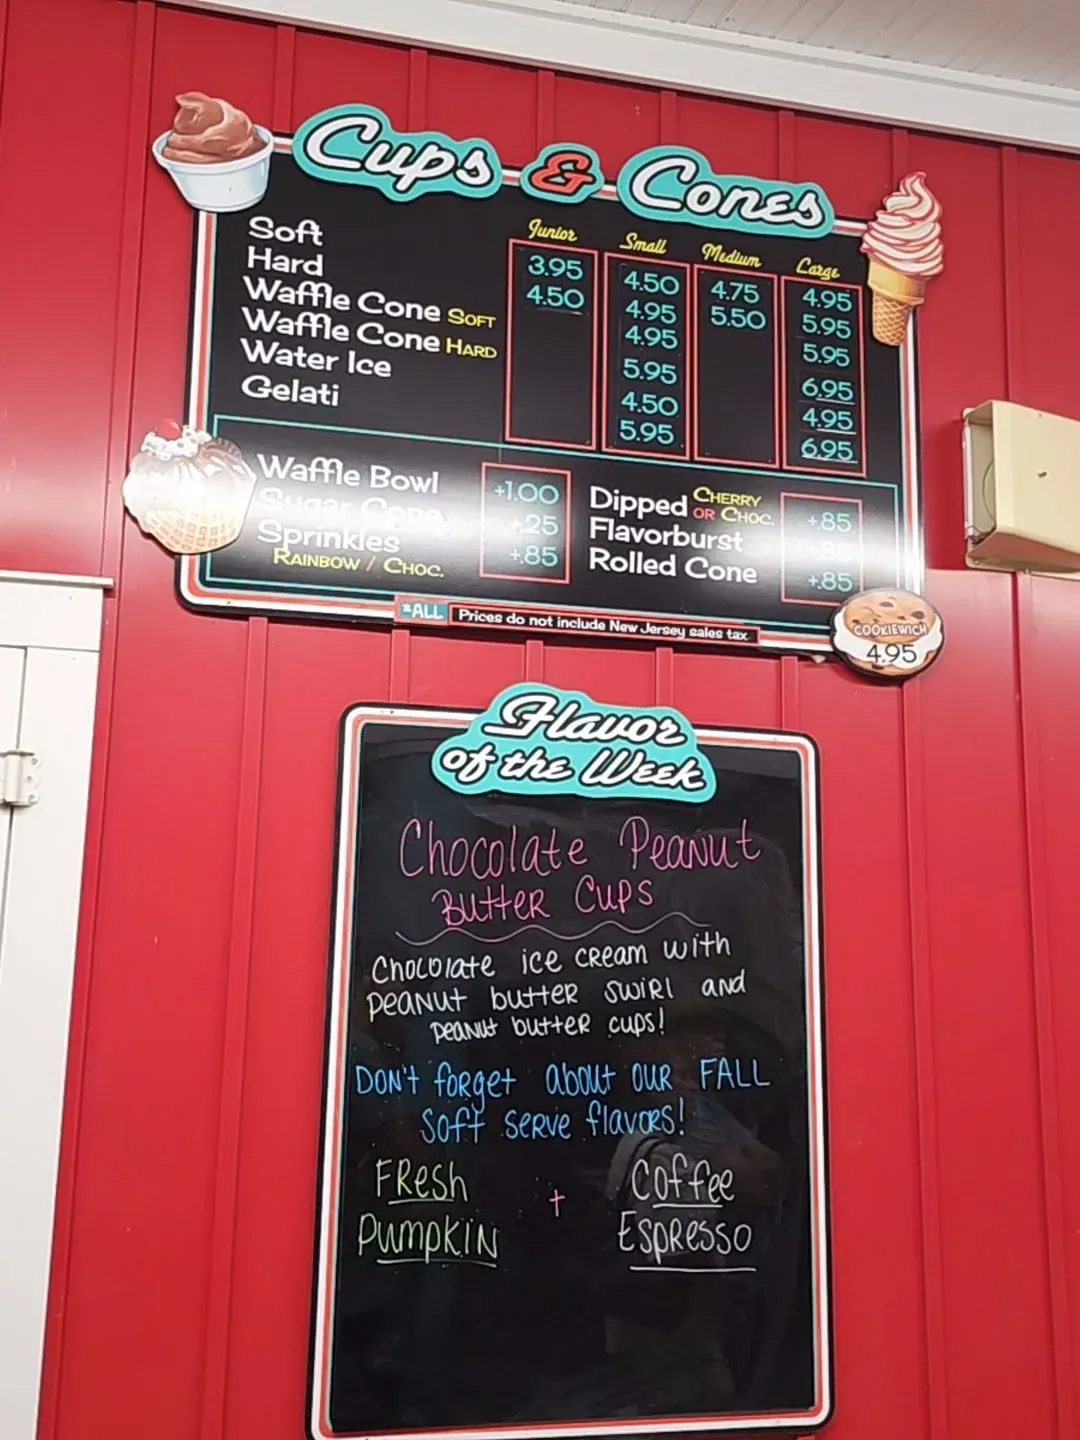 Cups & Cones
Junior Small Medium Large
Soft 3.95 4.50 4.75 4.95
Hard 4.50 4.95 5.50 5.95
Waffle Cone SOFT 4.95 5.95
Waffle Cone HARD 5.95 6.95
Water Ice 4.50 4.95
Gelati 5.95 6.95
Waffle Bowl +1.00
Sugar Cone .25
Sprinkles +.85
RAINBOW / CHOC.
Dipped CHERRY OR CHOC. +.85
Flavorburst .85
Rolled Cone +.85
*ALL Prices do not include New Jersey sales tax
COOKIEWICH
4.95
Flavor
of the Week
Chocolate Peanut
Butter Cups
Chocolate ice cream with
peanut butter swirl and
peanut butter cups!
Don't forget about our FALL
Soft serve flavors!
Fresh + Coffee
Pumpkin Espresso